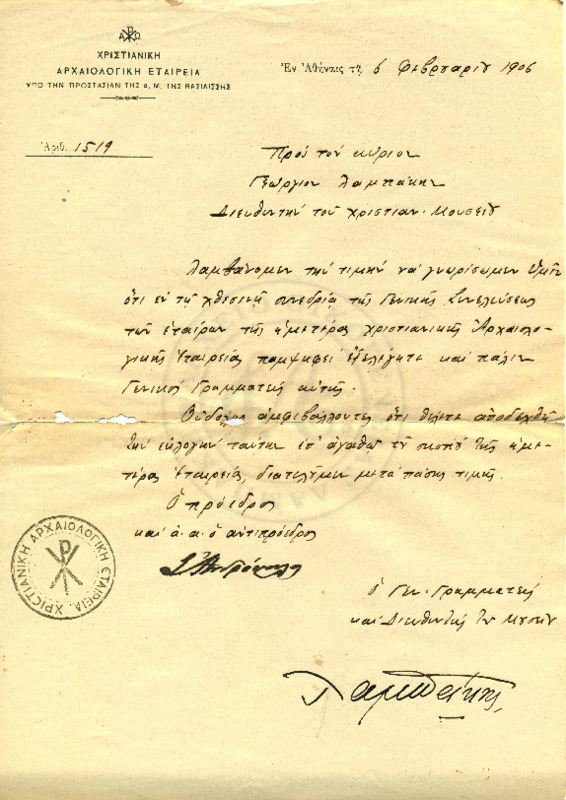 Α Ω
ΧΡΙΣΤΙΑΝΙΚΗ
ΑΡΧΑΙΟΛΟΓΙΚΗ ΕΤΑΙΡΕΙΑ
ΥΠΟ ΤΗΝ ΠΡΟΣΤΑΣΙΑΝ ΤΗΣ Α. Μ. ΤΗΣ ΒΑΣΙΛΙΣΣΗΣ
Ἐν Ἀθήναις τῇ 6 Φεβρουαρίου 1906
Ἀριθ. 1519
Πρὸς τὸν κύριον
Γεώργιον Λαμπάκην
Διευθυντὴν τοῦ Χριστιαν. Μουσείου
Λαμβάνομεν τὴν τιμὴν νὰ γνωρίσωμεν Ὑμῖν
ὅτι ἐν τῇ χθεσινῇ συνεδρίᾳ τῆς Γενικῆς Συνελεύσεως
τῶν ἑταίρων τῆς ἡμετέρας χριστιανικῆς Ἀρχαιολο-
γικῆς Ἑταιρείας παμψηφεὶ ἐξελέγητε καὶ πάλιν
Γενικὸς Γραμματεὺς αὐτῆς.
Οὐδόλως ἀμφιβάλλοντες ὅτι θέλετε ἀποδεχθῆ
τὴν ἐκλογὴν ταύτην ἐπ' ἀγαθῷ τοῦ σκοποῦ τῆς ἡμε-
τέρας Ἑταιρείας, διατελοῦμεν μετὰ πάσης τιμῆς.
Ὁ πρόεδρος
καὶ ἀ. α. ὁ ἀντιπρόεδρος
ὁ Γεν. Γραμματεὺς
καὶ Διευθυντὴς τοῦ Μουσείου
Λαμπάκης
ΧΡΙΣΤΙΑΝΙΚΗ ΑΡΧΑΙΟΛΟΓΙΚΗ ΕΤΑΙΡΕΙΑ